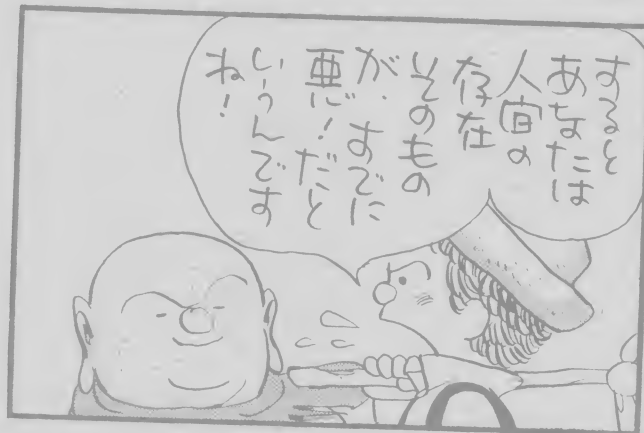 すると
あなたは
人間の
存在
そのもの
が、すでに
悪だ!だと
いうんです
ね!